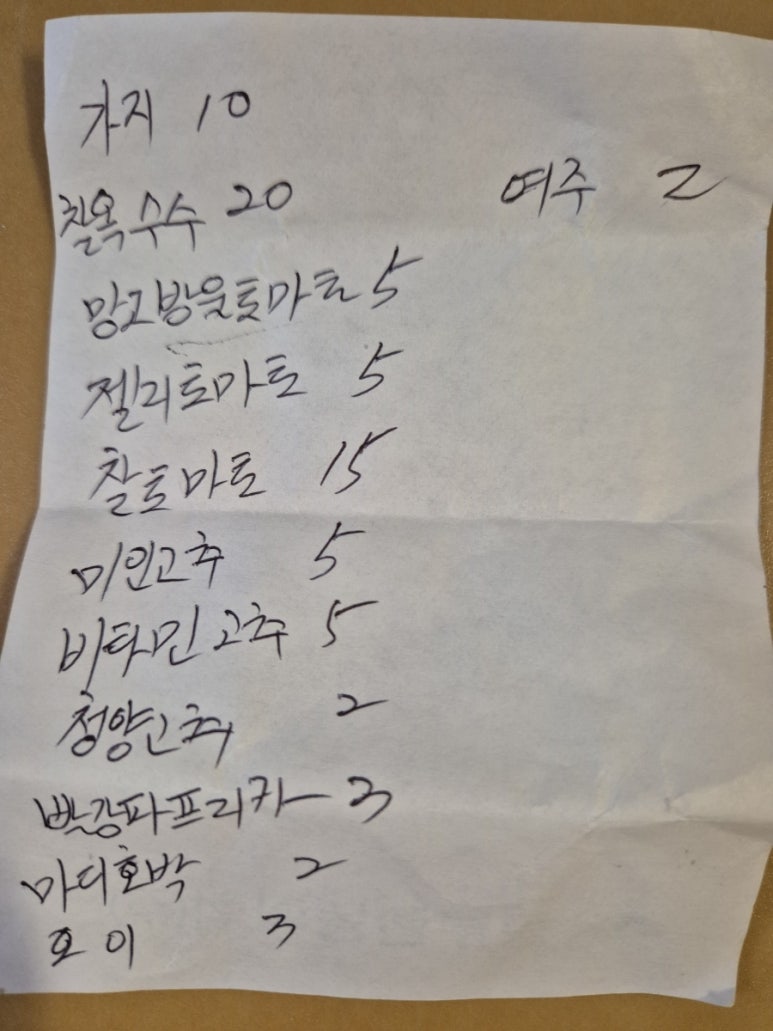 가지 10
찰옥수수 20
여주 2
망고방울토마토 5
젤리토마토 5
찰토마토 15
미인고추 5
비타민고추 5
청양고추 2
빨강파프리카 3
마디호박 2
오이 3